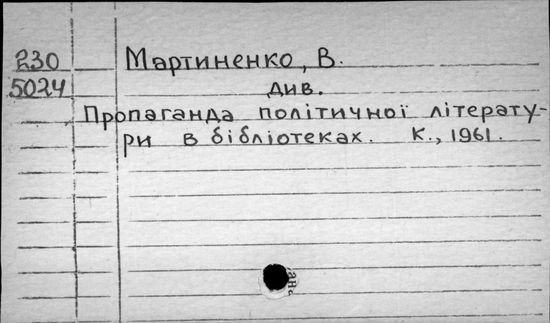 230
5024
Мартиненко, В.
див.
Пропаганда політичної літерату-
ри в бібліотеках. К., 1961.